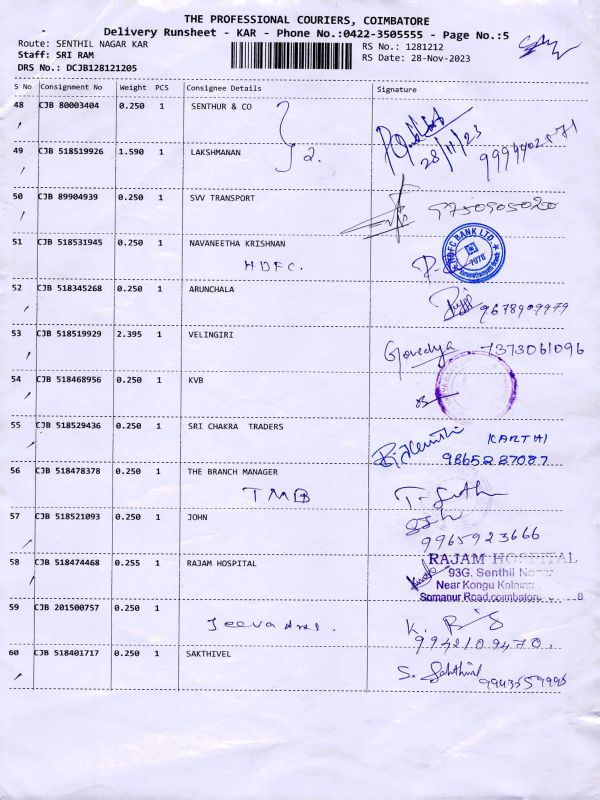 THE PROFESSIONAL COURIERS, COIMBATORE
Delivery Runsheet - KAR - Phone No.:0422-3505555 - Page No.:5
Route: SENTHIL NAGAR KAR
RS No.: 1281212
Staff: SRI RAM
RS Date: 28-Nov-2023
DRS No.: DCJB128121205
S No Consignment No Weight PCS Consignee Details Signature
48 CJB 80003404 0.250 1 SENTHUR & CO
28/11/23
49 CJB 518519926 1.590 1 LAKSHMANAN 2.
50 CJB 89904939 0.250 1 SVV TRANSPORT 9750905020
51 CJB 518531945 0.250 1 NAVANEETHA KRISHNAN
HDFC.
HDFC BANK LTD.
7078
52 CJB 518345268 0.250 1 ARUNCHALA
9678909979
53 CJB 518519929 2.395 1 VELINGIRI
7373061096
54 CJB 518468956 0.250 1 KVB
55 CJB 518529436 0.250 1 SRI CHAKRA TRADERS
KARTHI
9865287087
56 CJB 518478378 0.250 1 THE BRANCH MANAGER
TMB
57 CJB 518521093 0.250 1 JOHN
9965923666
58 CJB 518474468 0.255 1 RAJAM HOSPITAL
RAJAM HOSPITAL
93G. Senthil Nagar
Near Kongu
Somanur Road, coimbatore 8
59 CJB 201500757 0.250 1
9942109470.
60 CJB 518401717 0.250 1 SAKTHIVEL
S. Sakthivel 9943559995